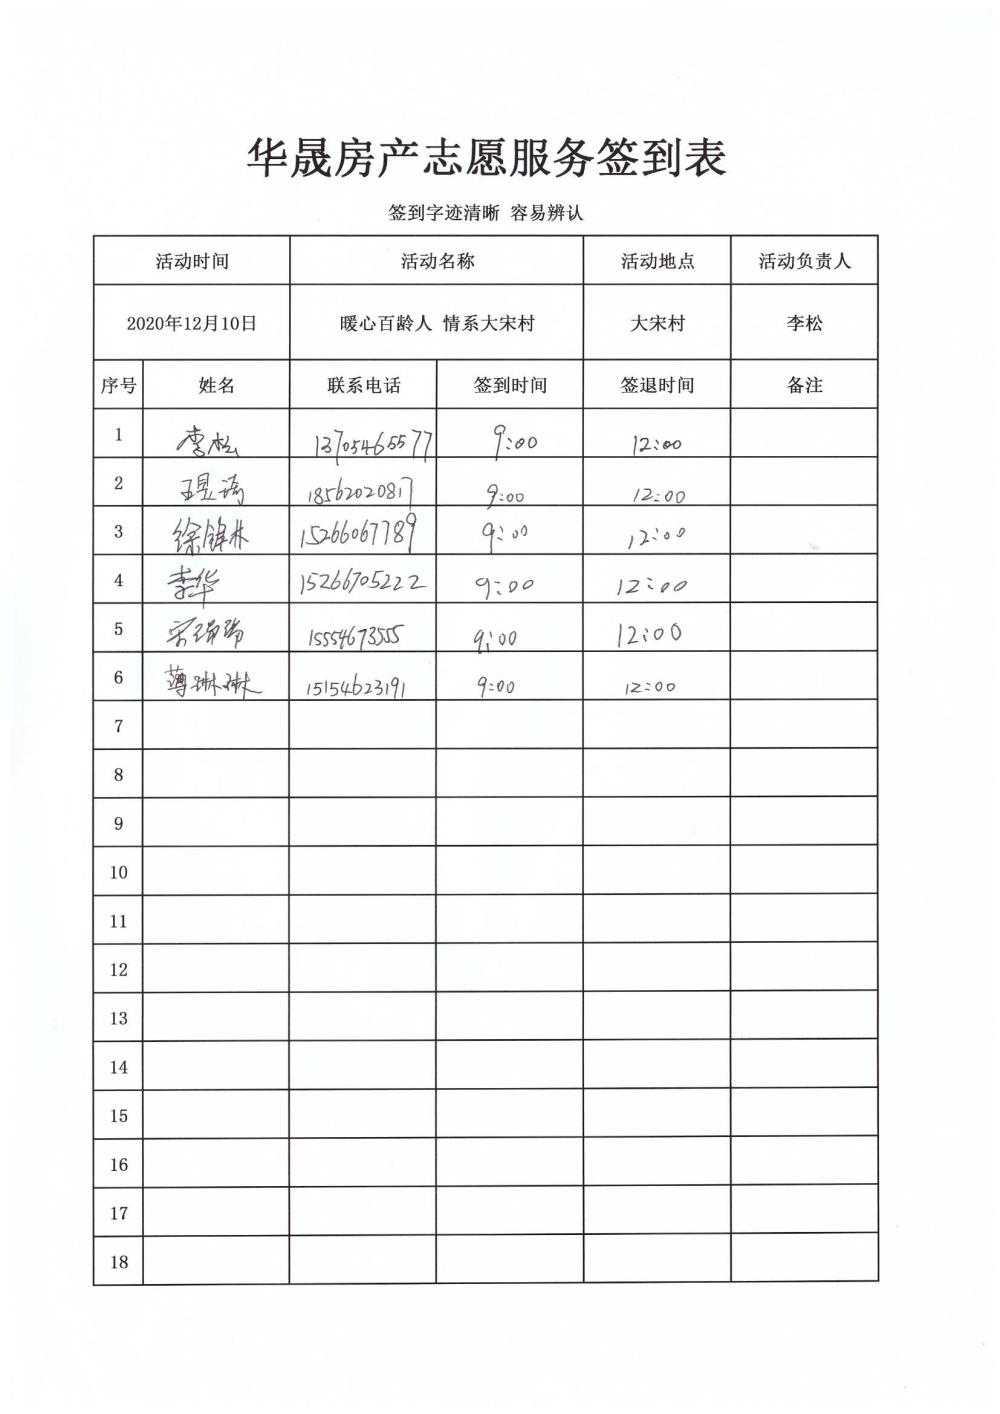 华晟房产志愿服务签到表
签到字迹清晰 容易辨认
活动时间 活动名称 活动地点 活动负责人
2020年12月10日 暖心百龄人 情系大宋村 大宋村 李松
序号 姓名 联系电话 签到时间 签退时间 备注
1 李松 13705465577 9:00 12:00
2 王昱琦 18562020817 9:00 12:00
3 徐锋林 15266067789 9:00 12:00
4 李华 15266705222 9:00 12:00
5 宋瑞瑞 15554673555 9:00 12:00
6 薄琳琳 15154623191 9:00 12:00
7
8
9
10
11
12
13
14
15
16
17
18